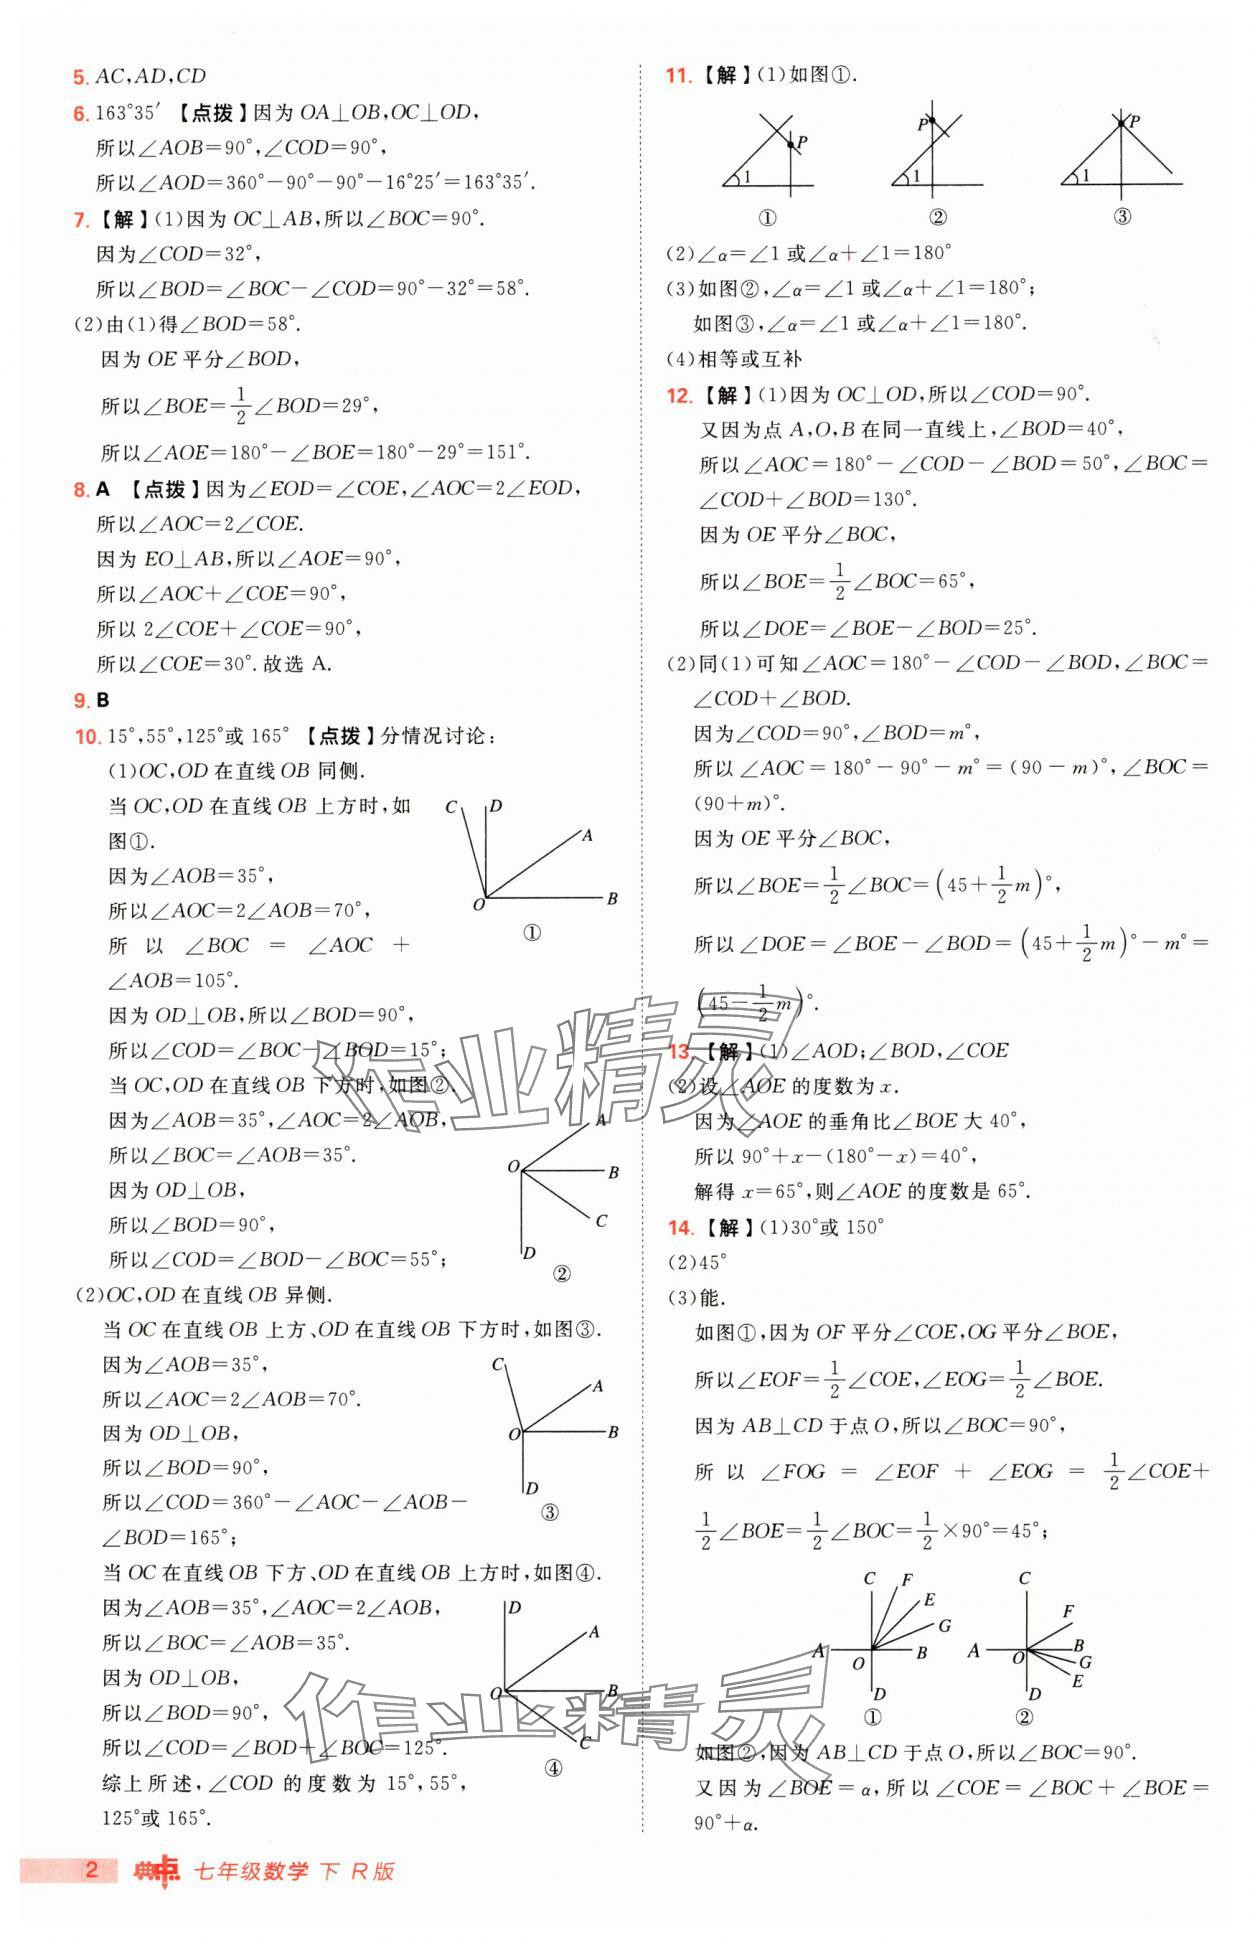 5. AC,AD,CD
6. 163°35′ 【点拨】因为 OA⊥OB,OC⊥OD,
所以∠AOB=90°,∠COD=90°,
所以∠AOD=360°-90°-90°-16°25′=163°35′.
7. 【解】(1)因为 OC⊥AB,所以∠BOC=90°.
因为∠COD=32°,
所以∠BOD=∠BOC-∠COD=90°-32°=58°.
(2)由(1)得∠BOD=58°.
因为 OE 平分∠BOD,
所以∠BOE=1/2∠BOD=29°,
所以∠AOE=180°-∠BOE=180°-29°=151°.
8. A 【点拨】因为∠EOD=∠COE,∠AOC=2∠EOD,
所以∠AOC=2∠COE.
因为 EO⊥AB,所以∠AOE=90°,
所以∠AOC+∠COE=90°,
所以 2∠COE+∠COE=90°,
所以∠COE=30°.故选 A.
9. B
10. 15°,55°,125°或 165° 【点拨】分情况讨论:
(1)OC,OD 在直线 OB 同侧.
当 OC,OD 在直线 OB 上方时,如
图①.
因为∠AOB=35°,
所以∠AOC=2∠AOB=70°,
所以 ∠BOC = ∠AOC +
∠AOB=105°.
因为 OD⊥OB,所以∠BOD=90°,
所以∠COD=∠BOC-∠BOD=15°;
当 OC,OD 在直线 OB 下方时,如图②.
因为∠AOB=35°,∠AOC=2∠AOB,
所以∠BOC=∠AOB=35°.
因为 OD⊥OB,
所以∠BOD=90°,
所以∠COD=∠BOD-∠BOC=55°;
C D A O B
①
A O B C D
②
(2)OC,OD 在直线 OB 异侧.
当 OC 在直线 OB 上方、OD 在直线 OB 下方时,如图③.
因为∠AOB=35°,
所以∠AOC=2∠AOB=70°.
因为 OD⊥OB,
所以∠BOD=90°,
所以∠COD=360°-∠AOC-∠AOB-
∠BOD=165°;
C A O B D
③
当 OC 在直线 OB 下方、OD 在直线 OB 上方时,如图④.
因为∠AOB=35°,∠AOC=2∠AOB,
所以∠BOC=∠AOB=35°.
因为 OD⊥OB,
所以∠BOD=90°,
所以∠COD=∠BOD+∠BOC=125°.
综上所述,∠COD 的度数为 15°,55°,
125°或 165°.
D A O B C
④
11. 【解】(1)如图①.
P 1 P 1 P 1
① ② ③
(2)∠α=∠1 或∠α+∠1=180°
(3)如图②,∠α=∠1 或∠α+∠1=180°;
如图③,∠α=∠1 或∠α+∠1=180°.
(4)相等或互补
12. 【解】(1)因为 OC⊥OD,所以∠COD=90°.
又因为点 A,O,B 在同一直线上,∠BOD=40°,
所以∠AOC=180°-∠COD-∠BOD=50°,∠BOC=
∠COD+∠BOD=130°.
因为 OE 平分∠BOC,
所以∠BOE=1/2∠BOC=65°,
所以∠DOE=∠BOE-∠BOD=25°.
(2)同(1)可知∠AOC=180°-∠COD-∠BOD,∠BOC=
∠COD+∠BOD.
因为∠COD=90°,∠BOD=m°,
所以∠AOC=180°-90°-m°=(90-m)°,∠BOC=
(90+m)°.
因为 OE 平分∠BOC,
所以∠BOE=1/2∠BOC=(45+1/2m)°,
所以∠DOE=∠BOE-∠BOD=(45+1/2m)°-m°=
(45-1/2m)°.
13. 【解】(1)∠AOD;∠BOD,∠COE
(2)设∠AOE 的度数为 x.
因为∠AOE 的垂角比∠BOE 大 40°,
所以 90°+x-(180°-x)=40°,
解得 x=65°,则∠AOE 的度数是 65°.
14. 【解】(1)30°或 150°
(2)45°
(3)能.
如图①,因为 OF 平分∠COE,OG 平分∠BOE,
所以∠EOF=1/2∠COE,∠EOG=1/2∠BOE.
因为 AB⊥CD 于点 O,所以∠BOC=90°,
所以 ∠FOG = ∠EOF + ∠EOG = 1/2∠COE+
1/2∠BOE=1/2∠BOC=1/2×90°=45°;
C F E G A O B D
①
C F A O B G E D
②
如图②,因为 AB⊥CD 于点 O,所以∠BOC=90°.
又因为∠BOE=α,所以∠COE=∠BOC+∠BOE=
90°+α.
作业精灵
作业精灵
2 典中点 七年级数学 下 R版